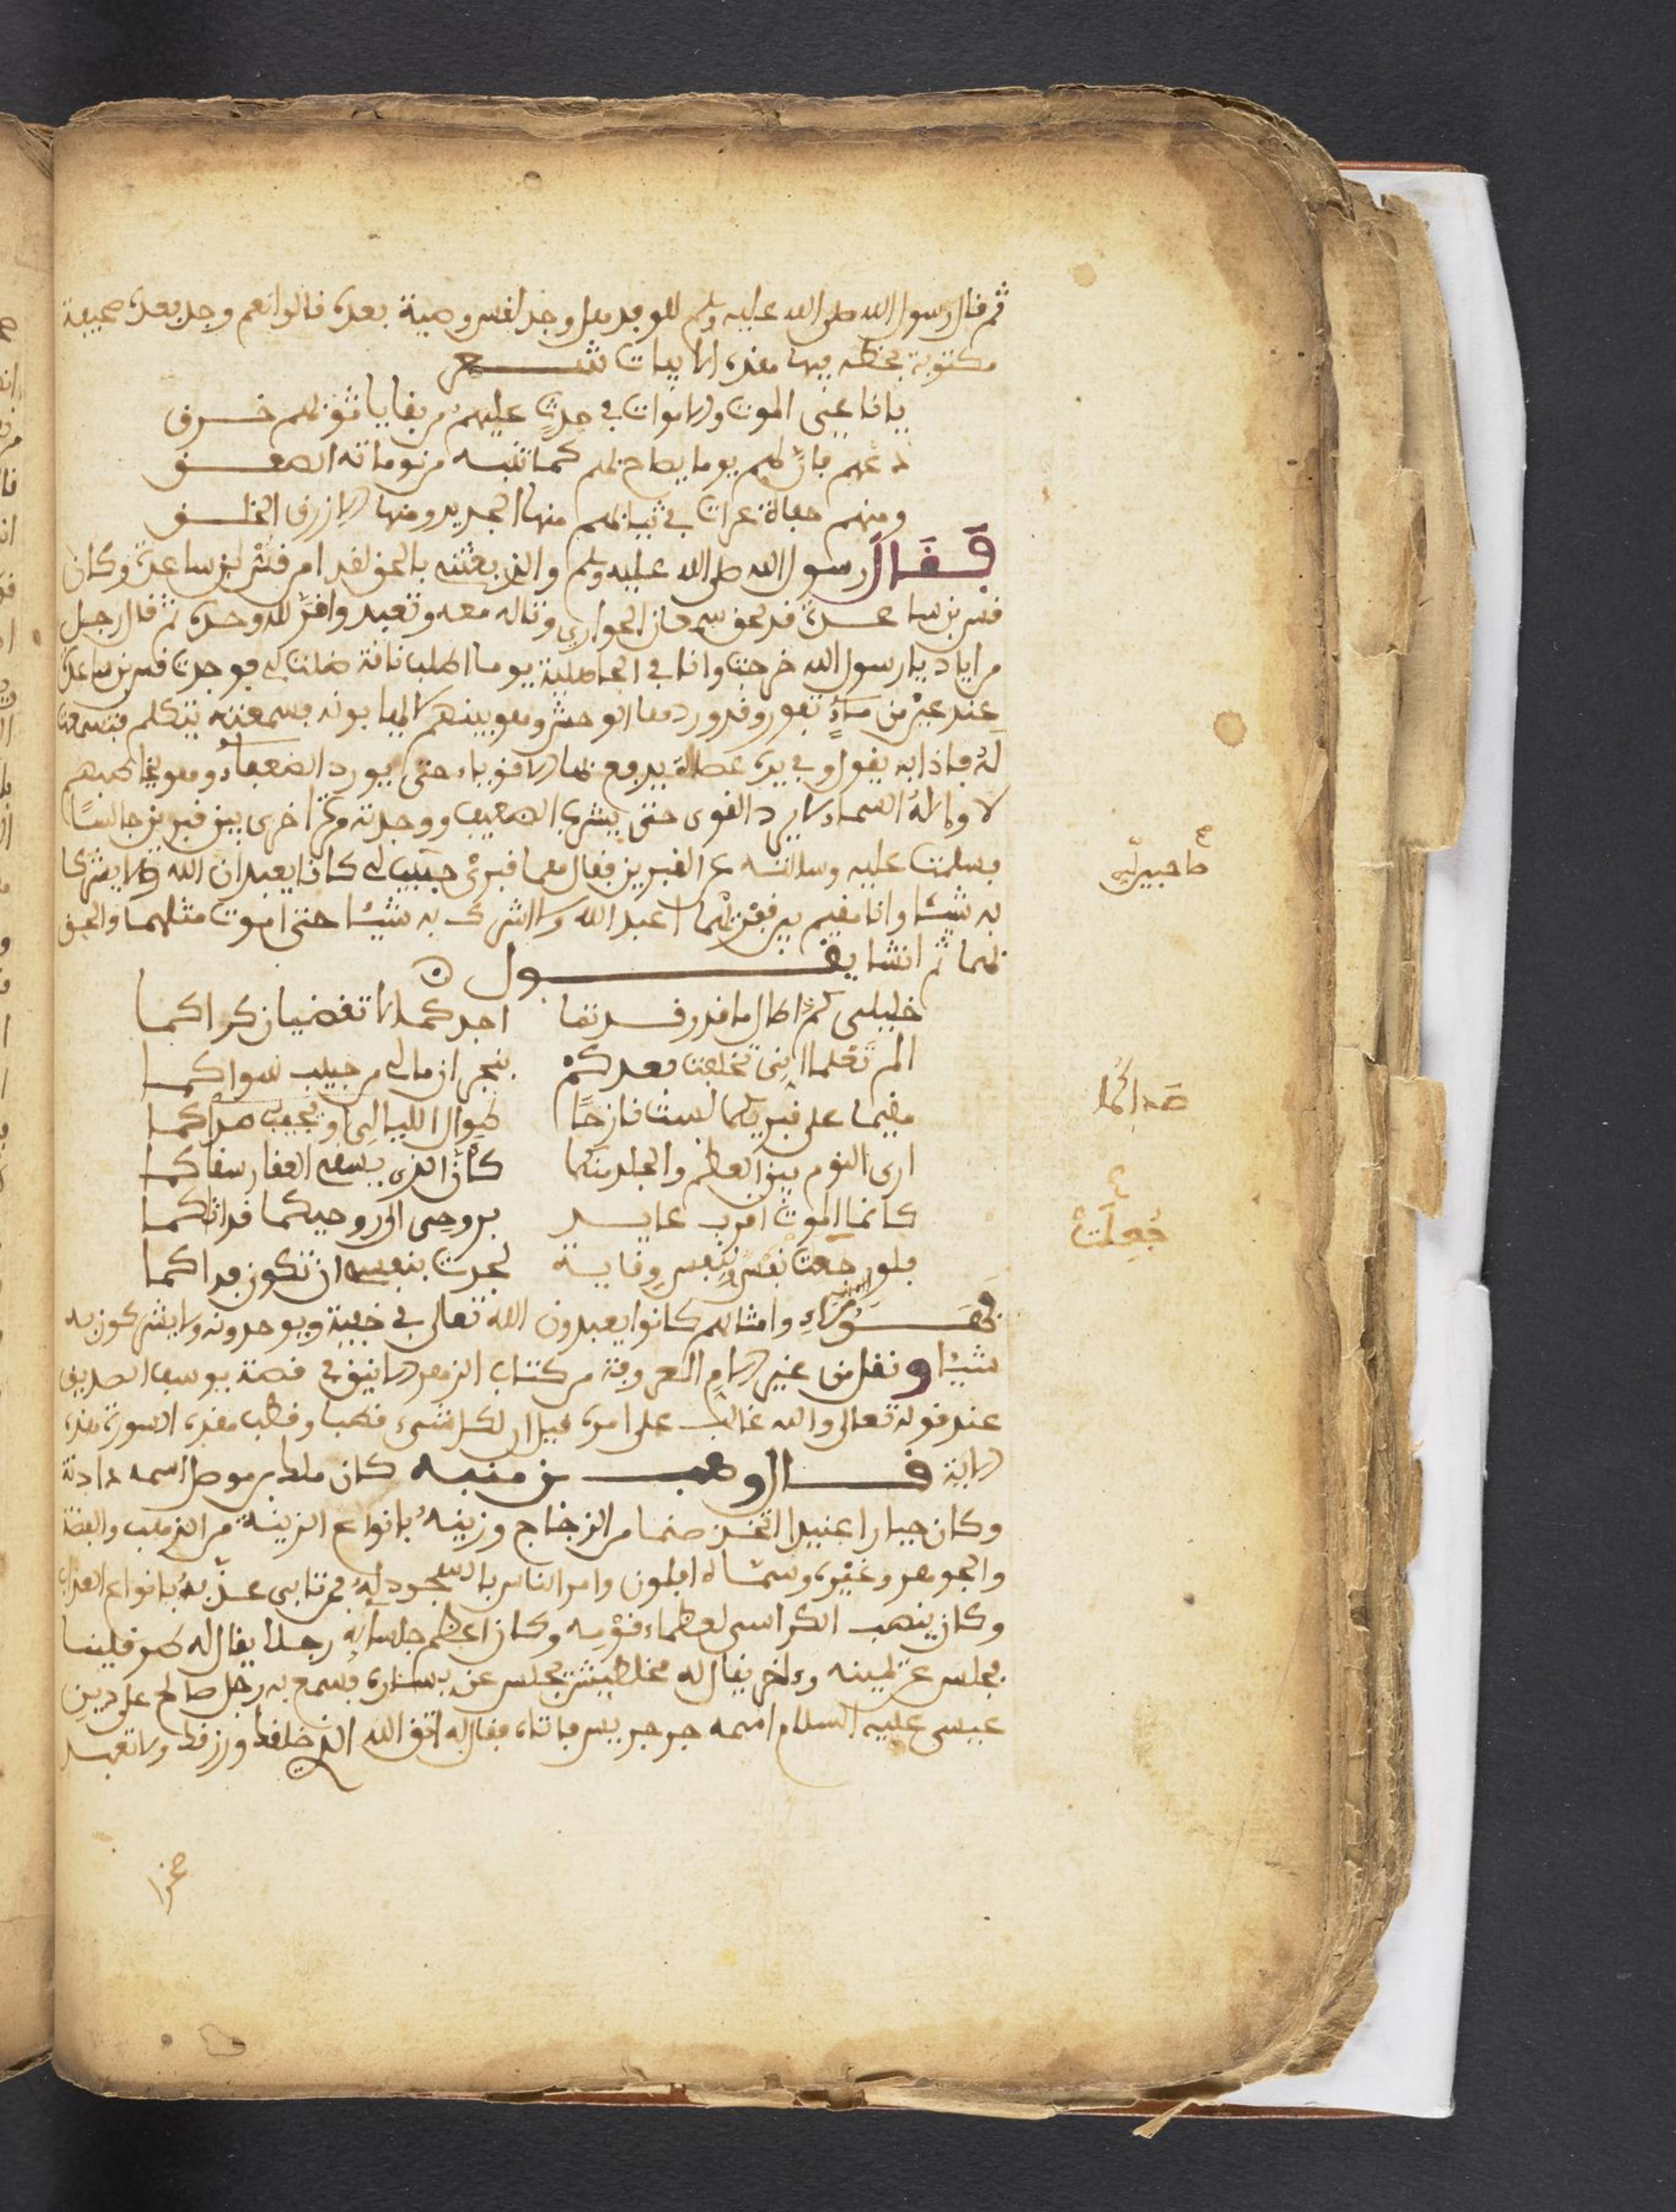 ثم قال رسول الله صلى الله عليه وسلم للوفد هل وجد لقس وصية بعده قالوا نعم وجد بعده صحيفة
مكتوبة بخطه فيها هذه الابيات شعر
يا ناعي الموت والاموات في جدث عليهم من بقايا ثوبهم خرق
دعهم فان لهم يوما يصاح بهم كما تنبه من نوماته الصعق
ومنهم حفاة عراة في ثيابهم منها الجديد ومنها الازرق الخلق
فقال رسول الله صلى الله عليه وسلم والذي بعثني بالحق لقد امن قس بن ساعدة وكان
قس بن ساعدة قد لحق الحواري وتاله معه وتعبد واقر لله وحده ثم قال رجل
من اياد يا رسول الله خرجت وانا في الجاهلية يوما اطلب ناقة ضلت لي فوجدت قس بن ساعدة
عند عين من ماء تفور وقد ورد معا الوحش وهو بينهم لا يهابونه فسمعته يتكلم فتسمعت
له فاذا به يقول وفي يده عصاة يدفع بها الاقوياء حتى يورد الضعفاء وهو يخاطبهم
لا واله السماء لا يرد القوى حتى يشرب الضعيف ووجدته مرة اخرى بين قبرين جالسًا
فسلمت عليه وسالته عن القبرين فقال هما قبري حبيبين لي كانا يعبدان الله ولا يشركا
صاحبين لي
به شيئا وانا مقيم بين قبريهما اعبد الله ولا اشرك به شيئا حتى اموت مثلهما والحق
بهما ثم انشا يقول
خليلى كم اطال ما قد رقدتما اجدكما لا تقضيان كراكما
الم تعلما اني تخلفت بعدكم بنجران مالى من حبيب سواكما
مقيما على قبريكما لست نازحًا طوال الليالى او يجيب صداكما
صداكما
ارى النوم بين العظم والجلد منكما كأن الذى يسقى العقار سقاكما
كانما الموت اقرب غايب بروحى او روحيكما قد اتاكما
فلو جعلت نفس لنفس وقاية لجدت بنفسى ان تكون فداكما
جُعِلَتْ
فهؤلاء وامثالهم كانوا يعبدون الله تعالى في خيبة ويوحدونه ولا يشركون به
شيئا ونقل من غير الام المعروفة من كتاب الزهر الانيق في قصة يوسف الصديق
عند قوله تعالى والله غالب على امره قيل ان لكل شىء قطب وقطب هذه السورة هذه
الاية قال وهب بن منبه كان ملكا بموصل اسمه دادنة
وكان جبارا عنيدا اتخذ صنما من الزجاج وزينه بانواع الزينة من الذهب والفضة
والجوهر وغيره وسماه ابلون وامر الناس بالسجود له فمن تابى عذبه بانواع العذاب
وكان ينصب الكراسى لعظماء قومه وكان اعظم جلسايه رجلا يقال له طرقلينا
يجلس عن يمينه وءاخر يقال له مخلطيش يجلس عن يساره فسمع به رجل صالح على دين
عيسى عليه السلام اسمه جرجيس فاتاه فقال له اتق الله الذي خلقك ورزقك ولا تعبد